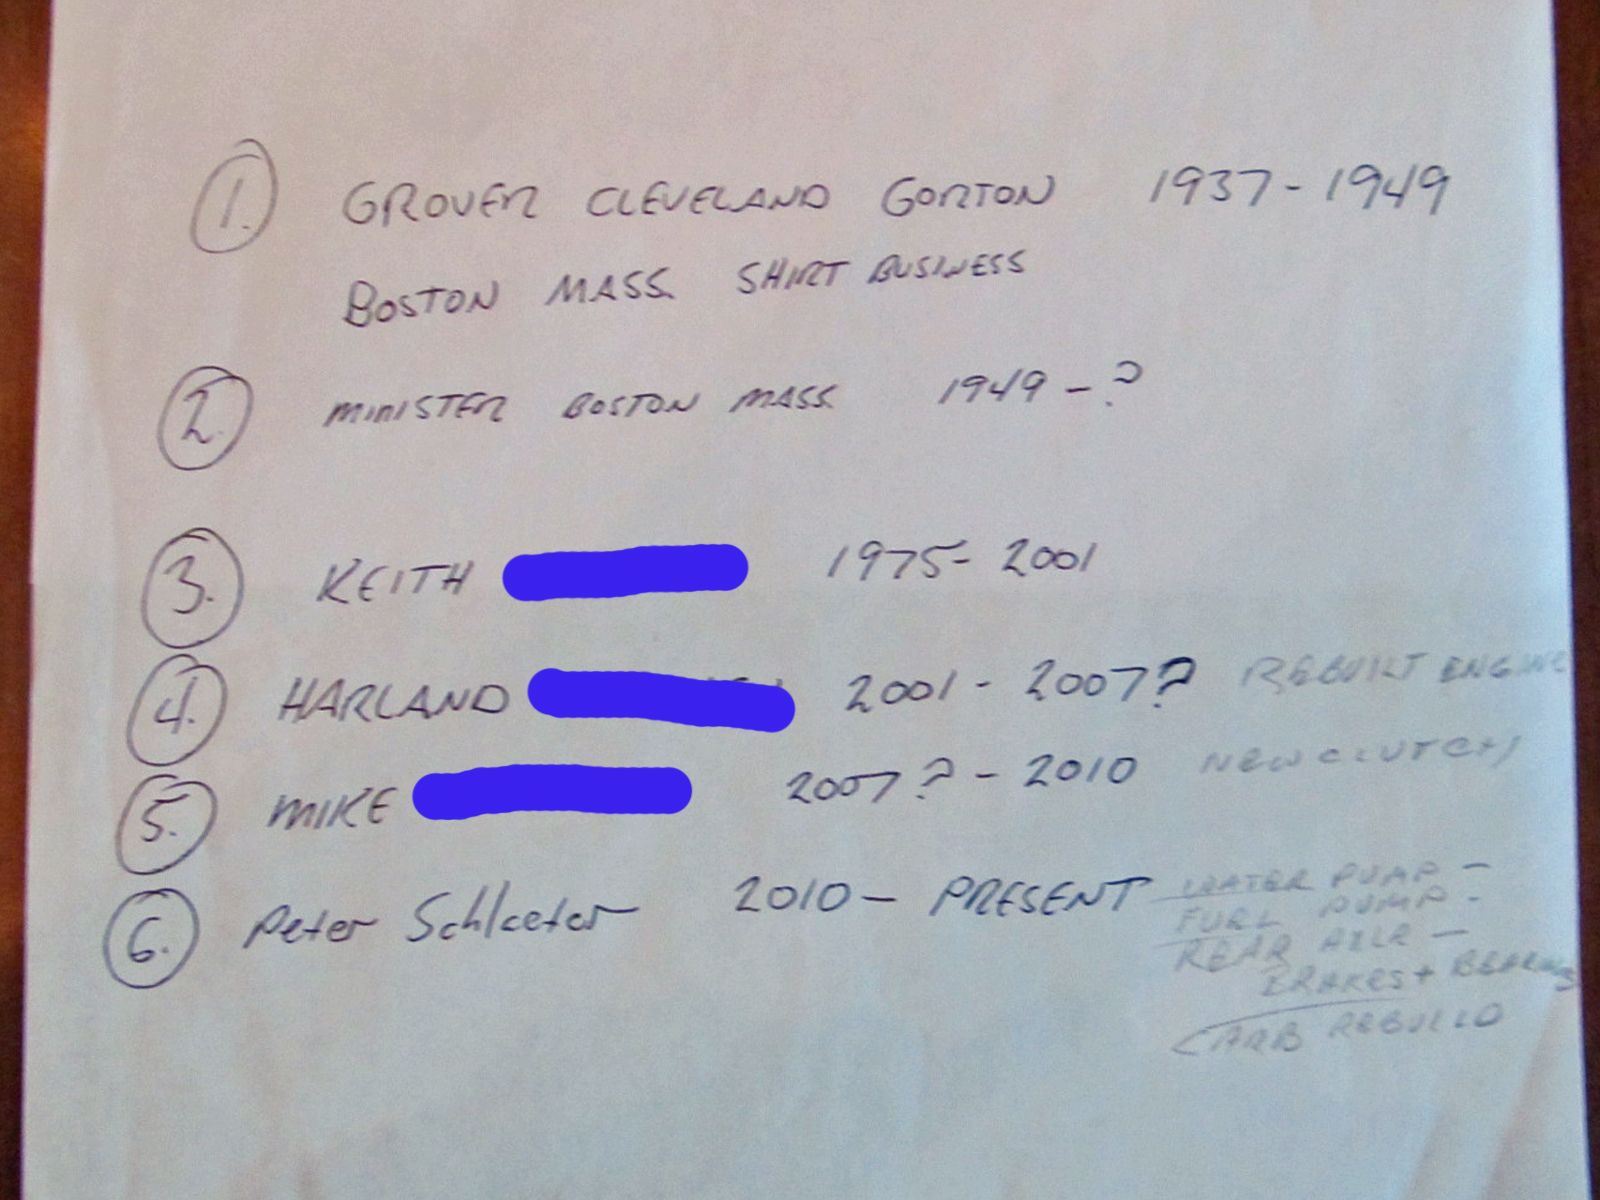 1. GROVER CLEVELAND GORTON 1937-1949
BOSTON MASS. SHIRT BUSINESS
2. MINISTER BOSTON MASS. 1949-?
3. KEITH 1975-2001
4. HARLAND 2001-2007? REBUILT ENGINE
5. MIKE 2007?-2010 NEW CLUTCH
6. Peter 2010-PRESENT WATER PUMP -
FUEL PUMP -
REAR AXLE -
BRAKES + BEARINGS
CARB REBUILD